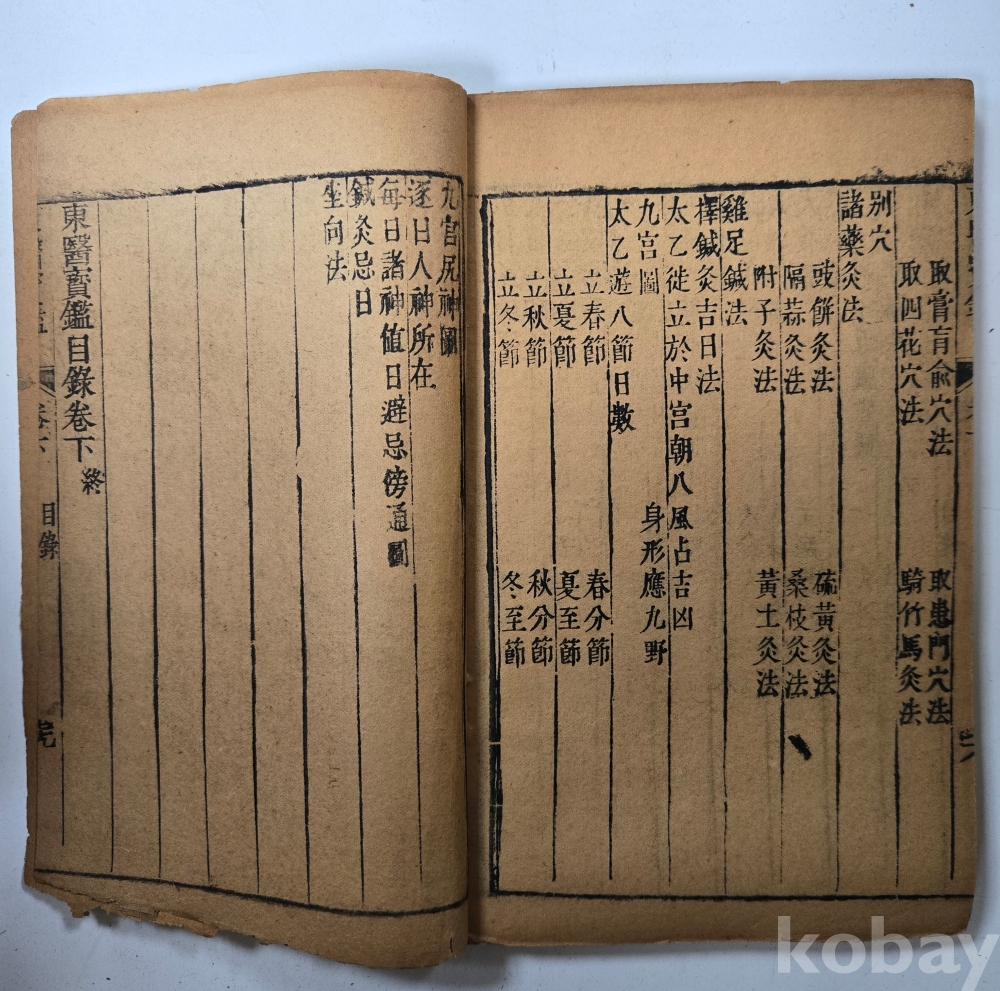 別穴
取膏肓俞穴法 取患門穴法
取四花穴法 騎竹馬灸法
諸藥灸法
豉餅灸法 硫黃灸法
隔蒜灸法 桑枝灸法
附子灸法 黃土灸法
雞足鍼法
擇鍼灸吉日法
太乙徙立於中宮朝八風占吉凶
九宮圖 身形應九野
太乙遊八節日數
立春節 春分節
立夏節 夏至節
立秋節 秋分節
立冬節 冬至節
九宮尻神圖
逐日人神所在
每日諸神值日避忌傍通圖
鍼灸忌日
坐向法
東醫寶鑑目錄卷下 終
卷下 目錄
kobay